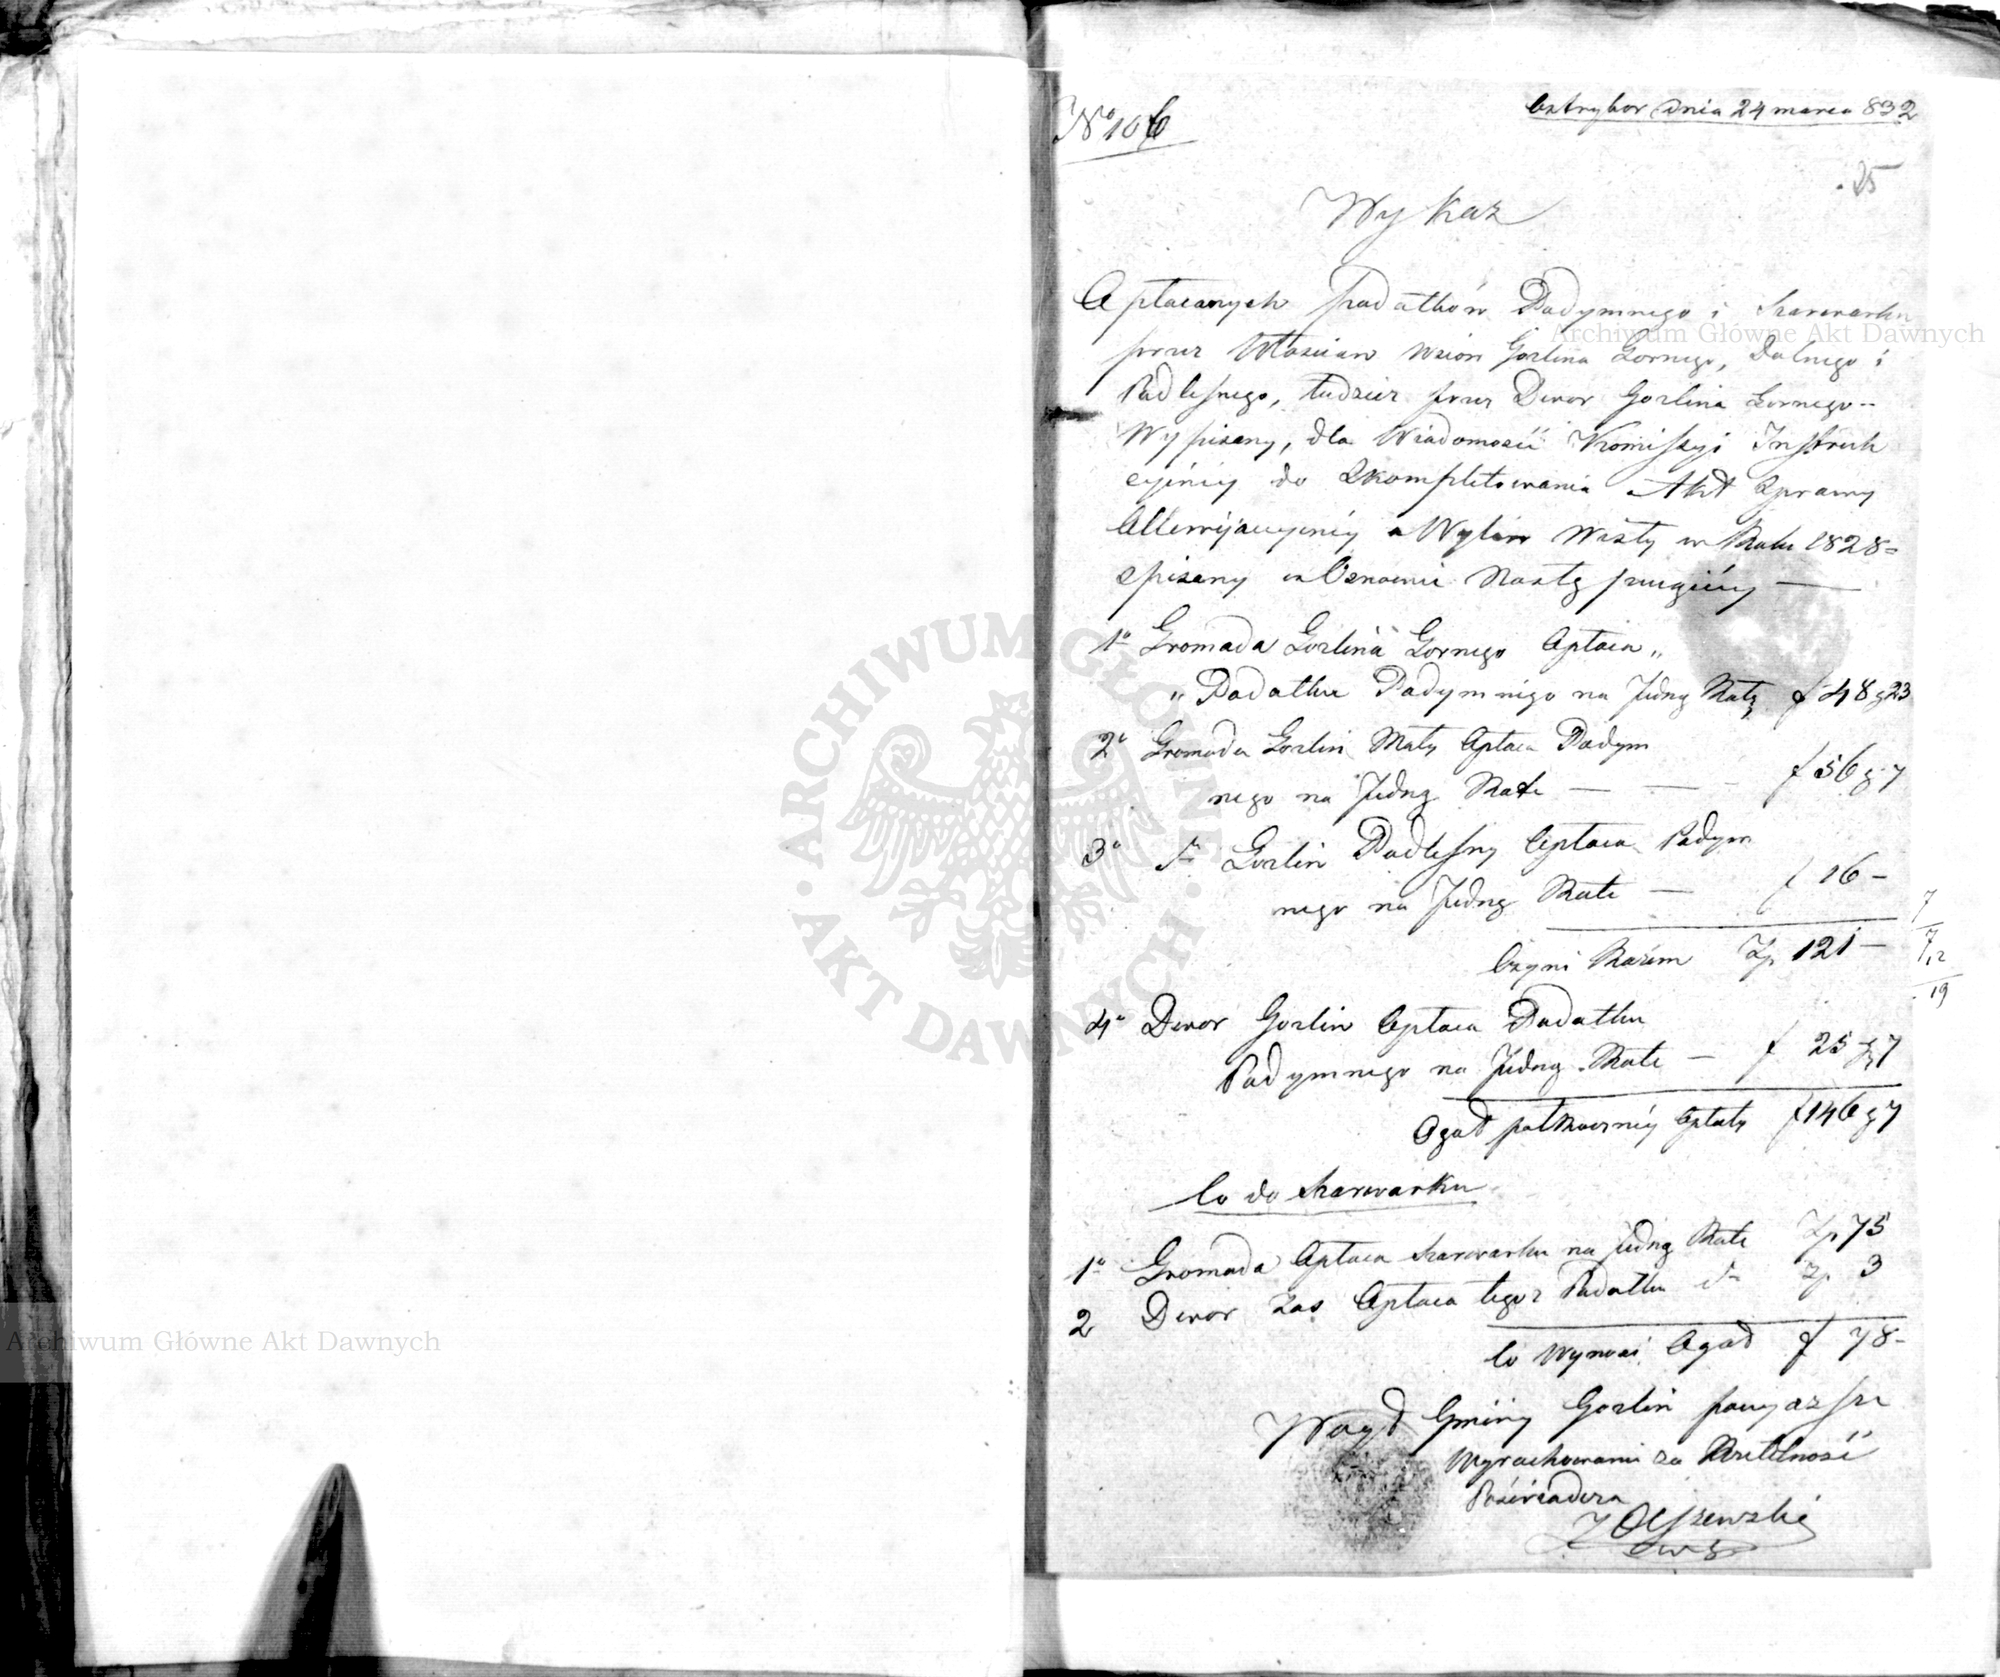 No 106
Ostrybor dnia 24 marca 832
25
Wykaz
Opłacanych podatków Podymnego i Szarwarku
przez Włoscian wsiow Gozlina Gornego, Dolnego i
Podlesnego, tudzież przez Dwor Gozlina Gornego
Wypisany, dla Wiadomości Komissyi Instruk
cyiney do Skompletowania Akt Sprawy
Allewijacyiney o Wylew Wisły w Roku 1828
spisany w Osnowie Następuiącéy
1o Gromada Gozlina Gornego Opłaca „
„ Podatku Podymnego na Jedną Ratę f 48 g 23
2o Gromada Gozlin Mały Opłaca Podym
nego na Jedną Rate f 56 g 7
3o Gozlin Podlesny Opłaca Podym
nego na Jedną Rate f 16 –
Czyni Razem Zp 121 –
7
7
12
19
4o Dwor Gozlin Opłaca Podatku
Podymnego na Jedną Rate – f 25 g 7
Ogoł Opłaty f 146 g 7
Co do Szarwarku
1o Gromada Opłaca Szarwarku na Jedną Rate Zp 75
2 Dwor zas Opłaca tegoz Podatku Zp 3
Co Wynosi Ogoł f 78 –
Woyt Gminy Gozlin powyzsze
Wyrachowanie za Rzetelność
Poświadcza
Olszewski
Archiwum Główne Akt Dawnych
Archiwum Główne Akt Dawnych
ARCHIWUM GŁÓWNE · AKT DAWNYCH ·